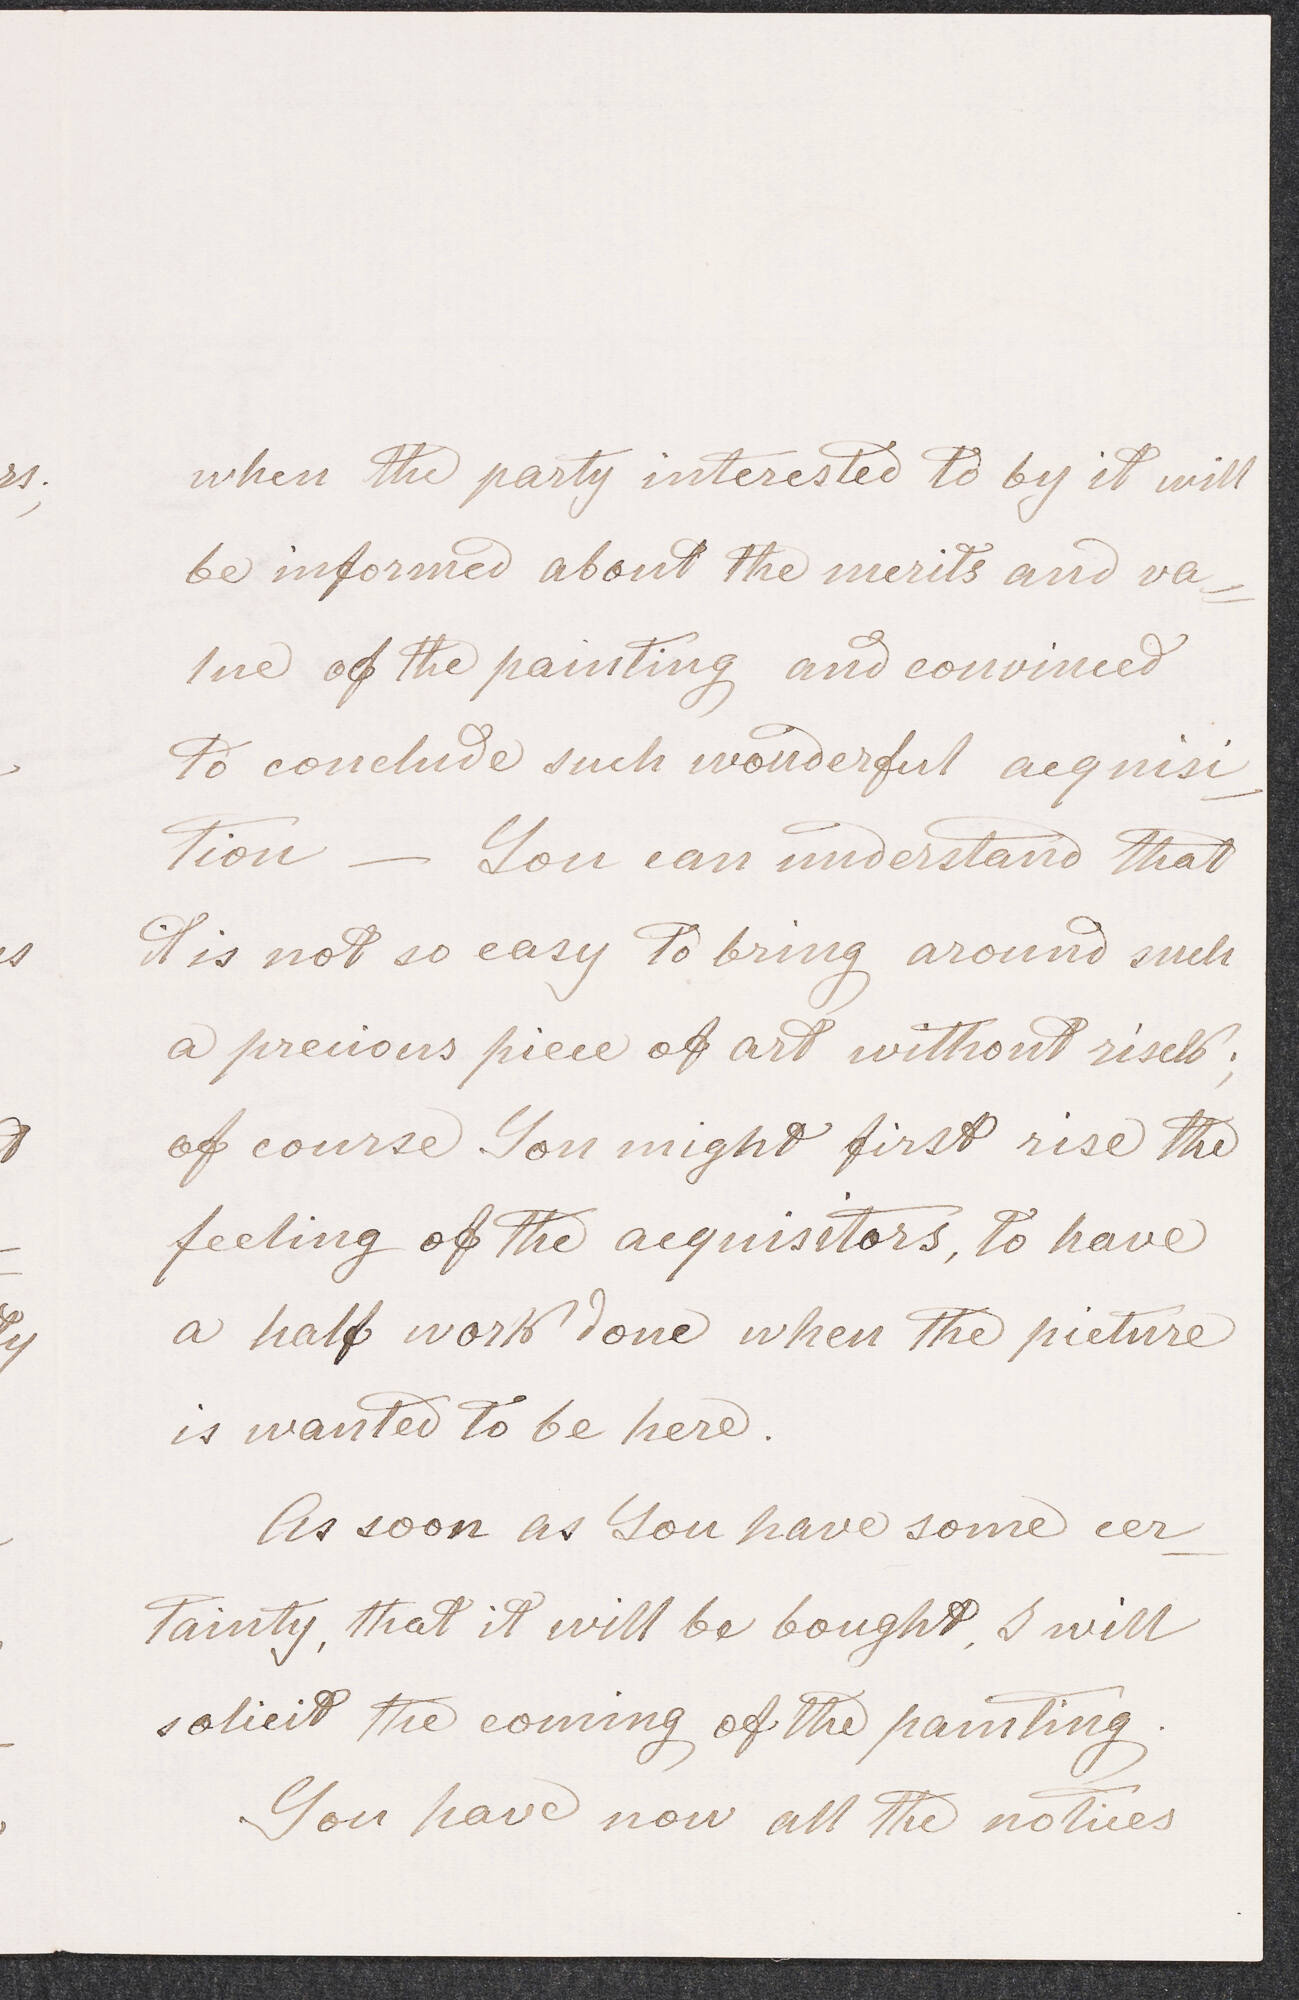 when the party interested to by it will
be informed about the merits and va=
lue of the painting and convinced
to conclude such wonderful acquisi-
tion — You can understand that
it is not so easy to bring around such
a precious piece of art without risck;
of course You might first rise the
feeling of the acquisitors, to have
a half work done when the picture
is wanted to be here.
As soon as You have some cer-
tainty, that it will be bought, I will
solicit the coming of the painting.
You have now all the notices